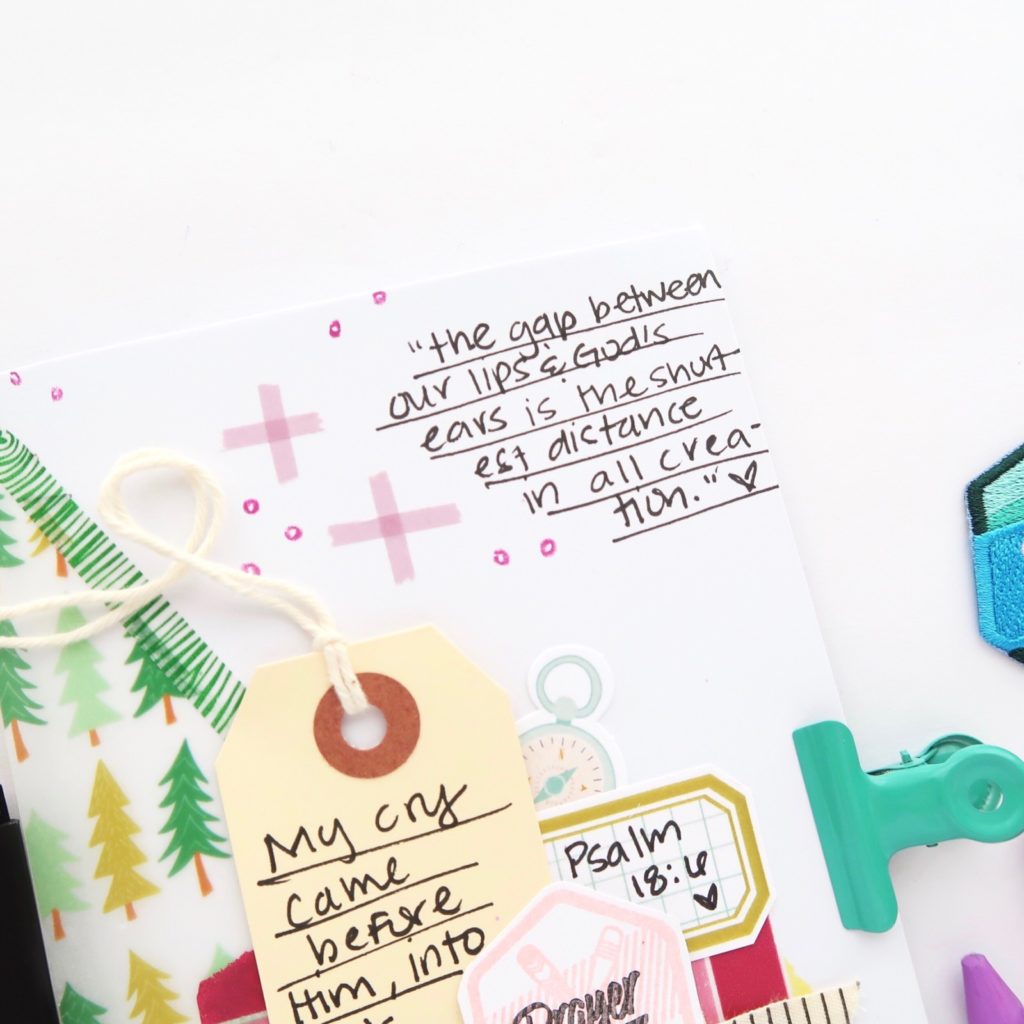 "the gap between
our lips & God's
ears is the short
est distance
in all crea-
tion." ♡
My cry
came
before
Him, into
Psalm
18:6
Prayer